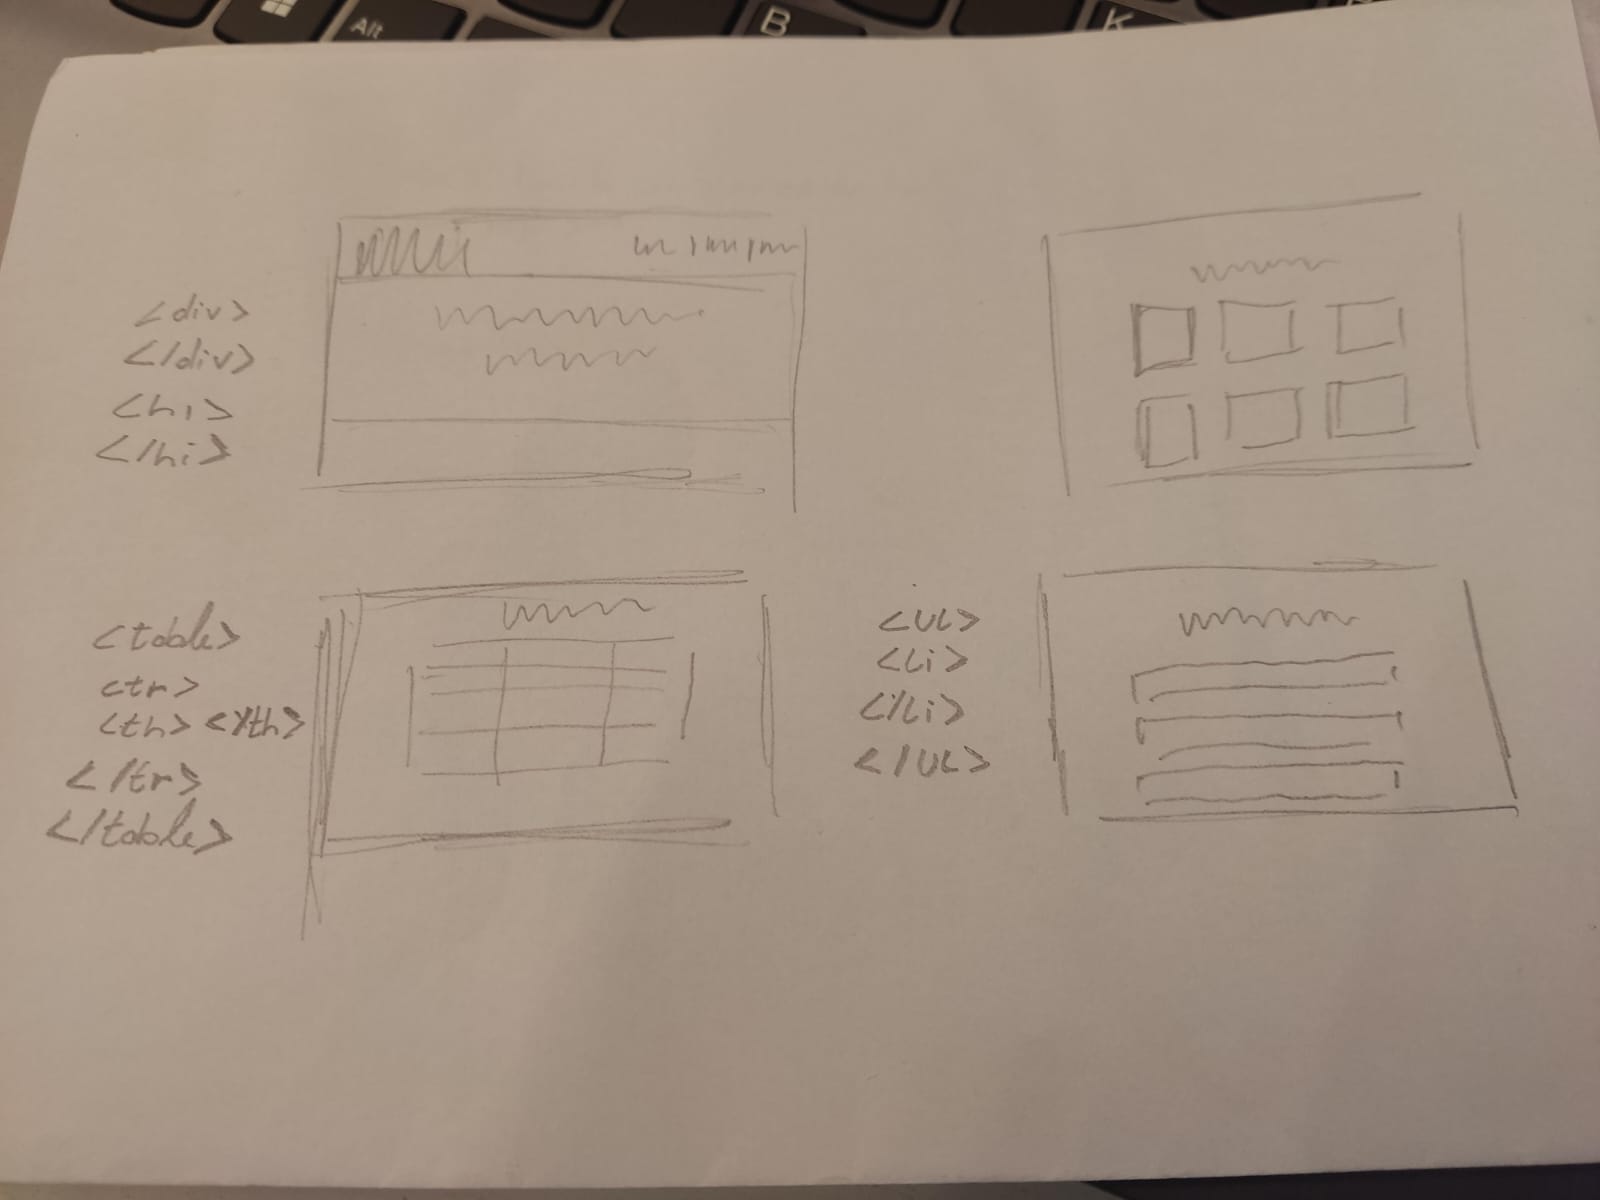 Alt
B
K
<div>
</div>
<h1>
</h1>
<table>
<tr>
<th> </th>
</tr>
</table>
<UL>
<Li>
</Li>
</UL>